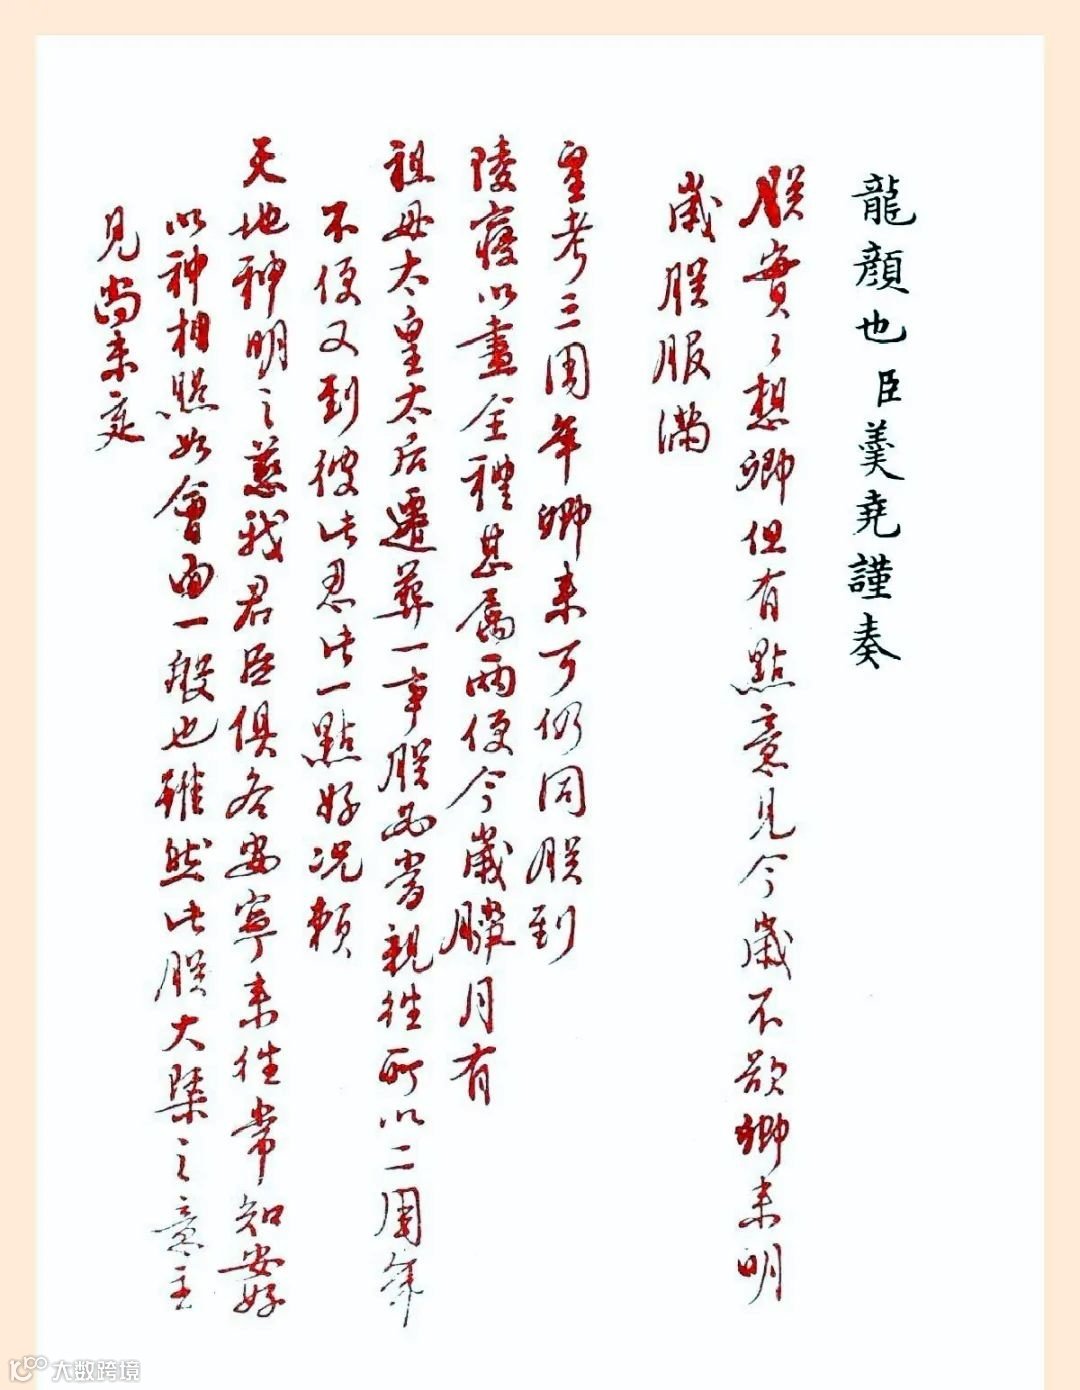 龍顏也臣羹堯謹奏
朕實〻想卿但有點意見今歲不欲卿來明
歲朕服滿
皇考三周年卿來可仍同朕到
陵寢以盡全禮甚屬兩便今歲臘月有
祖母太皇太后遷葬一事朕必當親往所以二周年
不便又到彼此忍此一點好况賴
天地神明之慈我君臣俱各安寧來往常知安好
以神相照如會面一般也雖然此朕大槩之意主
見尚未定
大数跨境